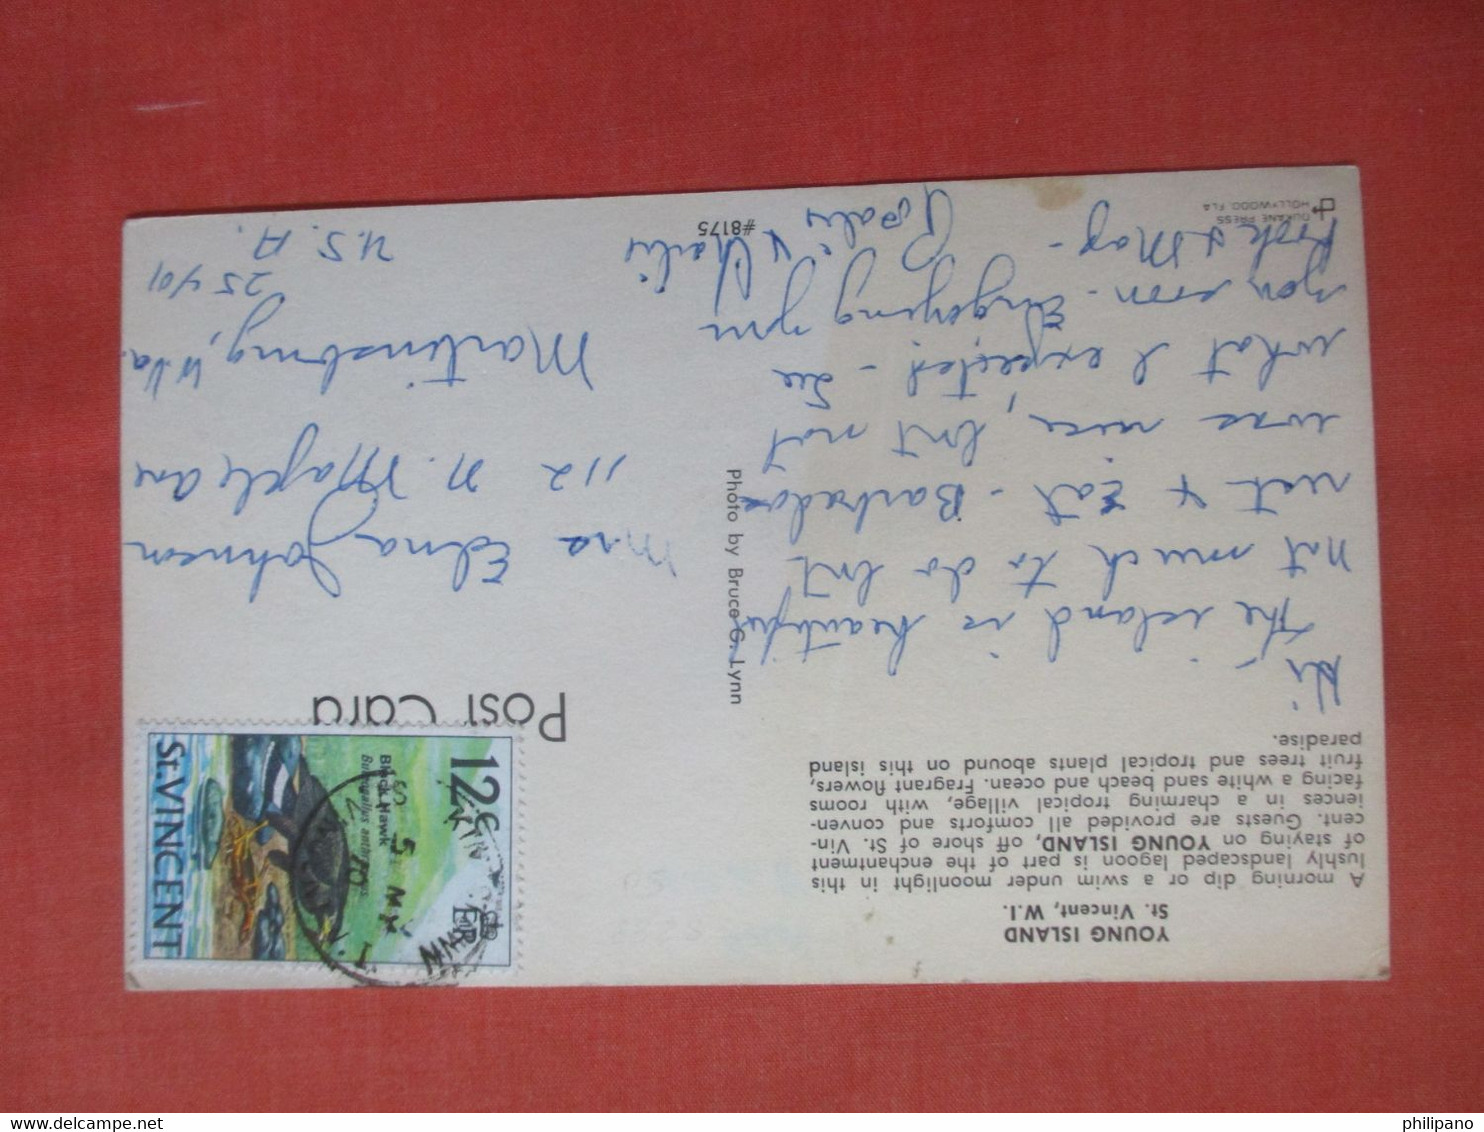 YOUNG ISLAND
St. Vincent, W.I.
A morning dip or a swim under moonlight in this
lushly landscaped lagoon is part of the enchantment
of staying on YOUNG ISLAND, off shore of St. Vin-
cent. Guests are provided all comforts and conven-
iences in a charming tropical village, with rooms
facing a white sand beach and ocean. Fragrant flowers,
fruit trees and tropical plants abound on this island
paradise.
Hi -
The island is beautiful
not much to do but
rest & Eat - Barbados
was nice, but not
what I expected - See
you soon - Enjoying you
& May -
& Charlie
DUKANE PRESS
HOLLYWOOD, FLA
#8175
Photo by Bruce G. Lynn
Post Card
12c
Black Hawk
St. VINCENT
Mrs Edna Johnson
112 N. Maple Ave
Martinsburg, W. Va.
25401
U. S. A.
philipano